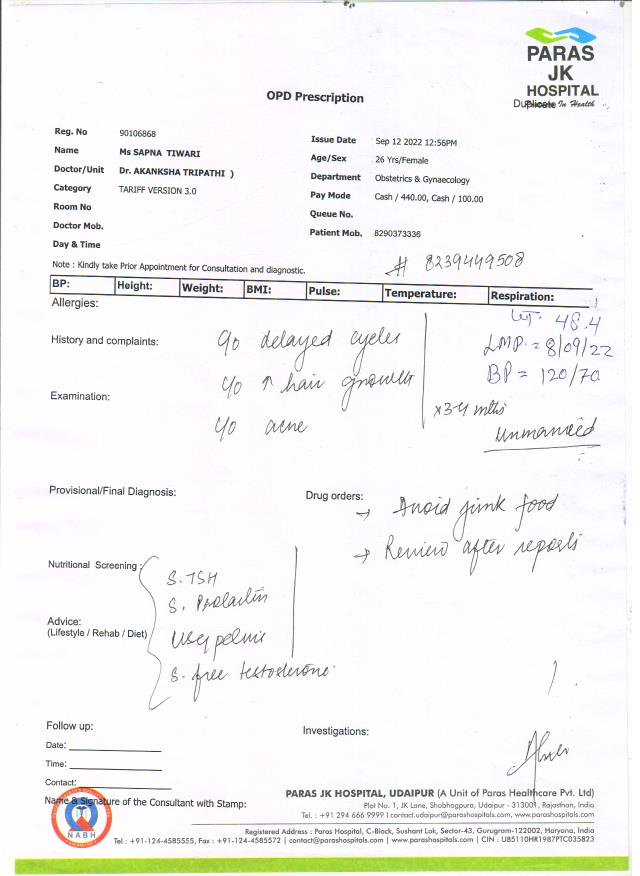 PARAS
JK
HOSPITAL
Duplicate In Health
OPD Prescription
Reg. No 90106868
Issue Date Sep 12 2022 12:56PM
Name Ms SAPNA TIWARI
Age/Sex 26 Yrs/Female
Doctor/Unit Dr. AKANKSHA TRIPATHI )
Department Obstetrics & Gynaecology
Category TARIFF VERSION 3.0
Pay Mode Cash / 440.00, Cash / 100.00
Room No
Queue No.
Doctor Mob.
Patient Mob. 8290373336
Day & Time
Note : Kindly take Prior Appointment for Consultation and diagnostic.
# 8239449508
BP: Height: Weight: BMI: Pulse: Temperature: Respiration:
Allergies:
WT. 48.4
History and complaints: c/o delayed cycles
LMP = 8/09/22
c/o ↑ hair growth
BP = 120/70
Examination:
x3-4 mths
c/o acne
Unmarried
Provisional/Final Diagnosis:
Drug orders:
→ Avoid junk food
→ Review after reports
Nutritional Screening:
S. TSH
S. Prolactin
Advice:
(Lifestyle / Rehab / Diet)
USG pelvis
S. free testosterone
Follow up:
Investigations:
Date:
Time:
Contact:
Name & Signature of the Consultant with Stamp:
NABH
PARAS JK HOSPITAL, UDAIPUR (A Unit of Paras Healthcare Pvt. Ltd)
Plot No. 1, JK Lane, Shobhagpura, Udaipur - 313001, Rajasthan, India
Tel. : +91 294 666 9999 | contact.udaipur@parashospitals.com, www.parashospitals.com
Registered Address : Paras Hospital, C-Block, Sushant Lok, Sector-43, Gurugram-122002, Haryana, India
Tel.: +91-124-4585555, Fax : +91-124-4585572 | contact@parashospitals.com | www.parashospitals.com | CIN : U85110HR1987PTC035823